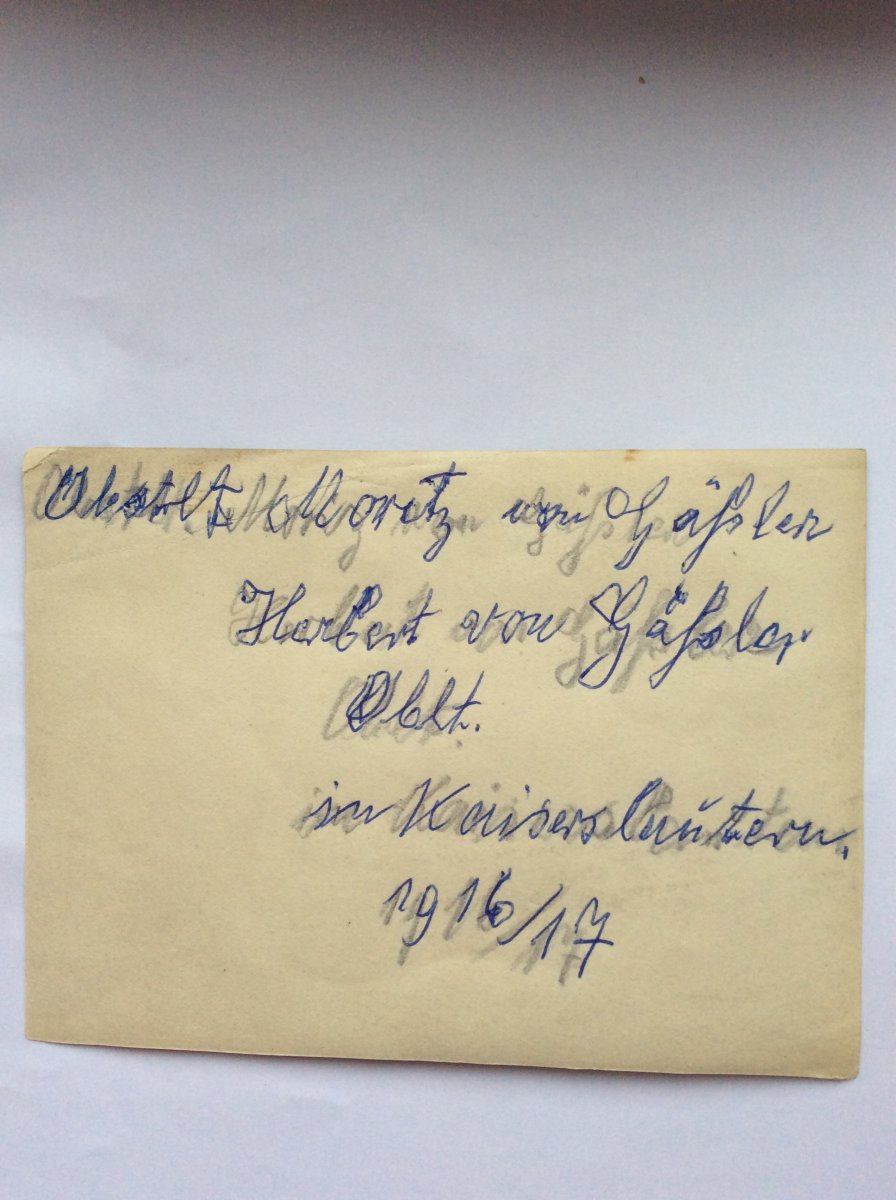 Obstlt. Moritz von Gäßler
Herbert von Gäßler
Oblt.
in Kaiserslautern.
1916/17